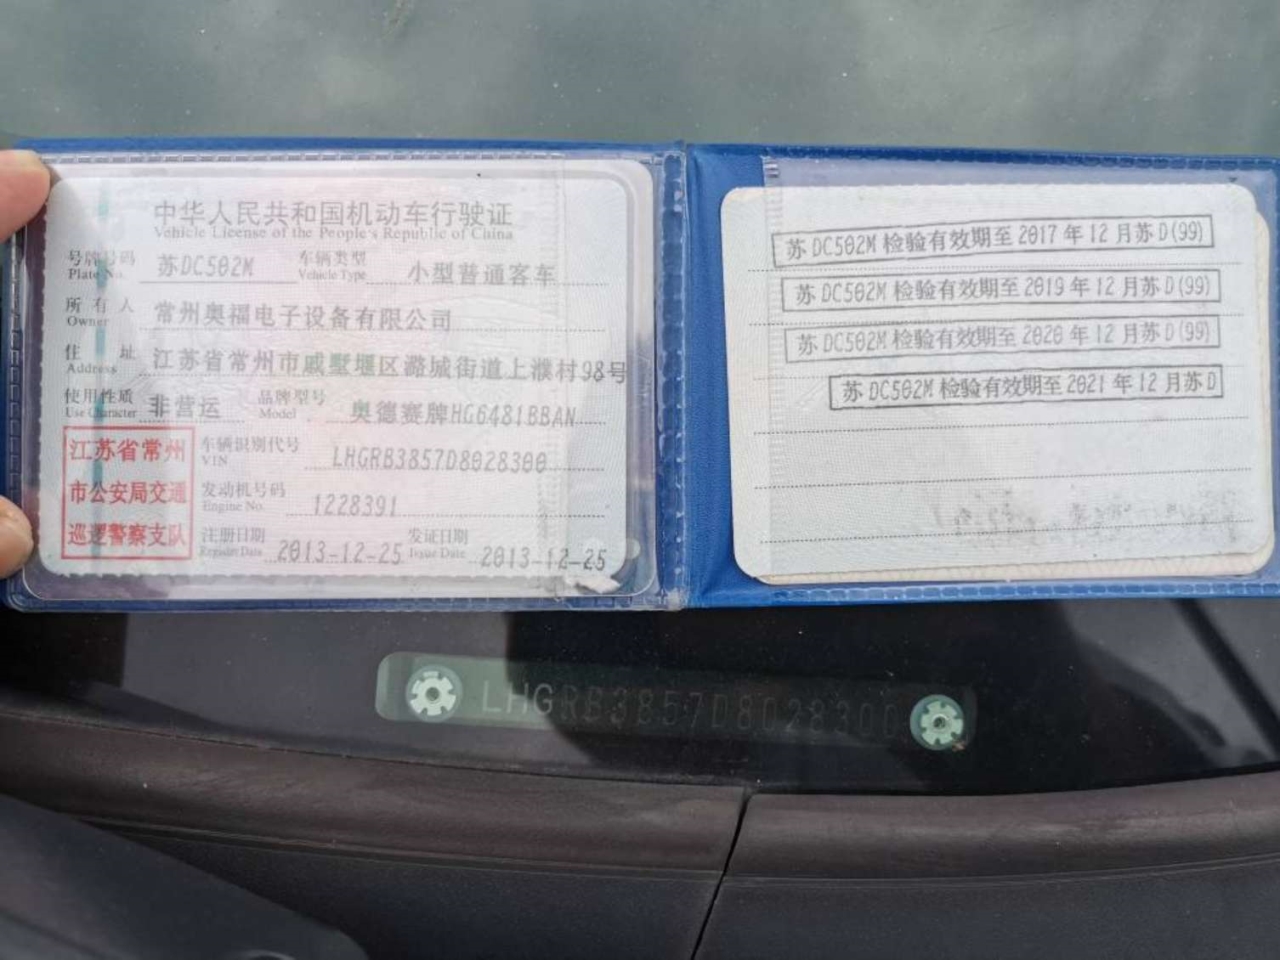 中华人民共和国机动车行驶证
Vehicle License of the People's Republic of China
号牌号码 苏DC502M 车辆类型 小型普通客车
Plate No. Vehicle Type
所有人 常州奥福电子设备有限公司
Owner
住址 江苏省常州市戚墅堰区潞城街道上濮村98号
Address
使用性质 非营运 品牌型号 奥德赛牌HG6481BBAN
Use Character Model
江苏省常州
市公安局交通
巡逻警察支队
车辆识别代号 LHGRB3857D8028300
VIN
发动机号码 1228391
Engine No.
注册日期 2013-12-25 发证日期 2013-12-25
Register Date Issue Date
苏DC502M检验有效期至2017年12月苏D(99)
苏DC502M检验有效期至2019年12月苏D(99)
苏DC502M检验有效期至2020年12月苏D(99)
苏DC502M检验有效期至2021年12月苏D
LHGRB3857D8028300